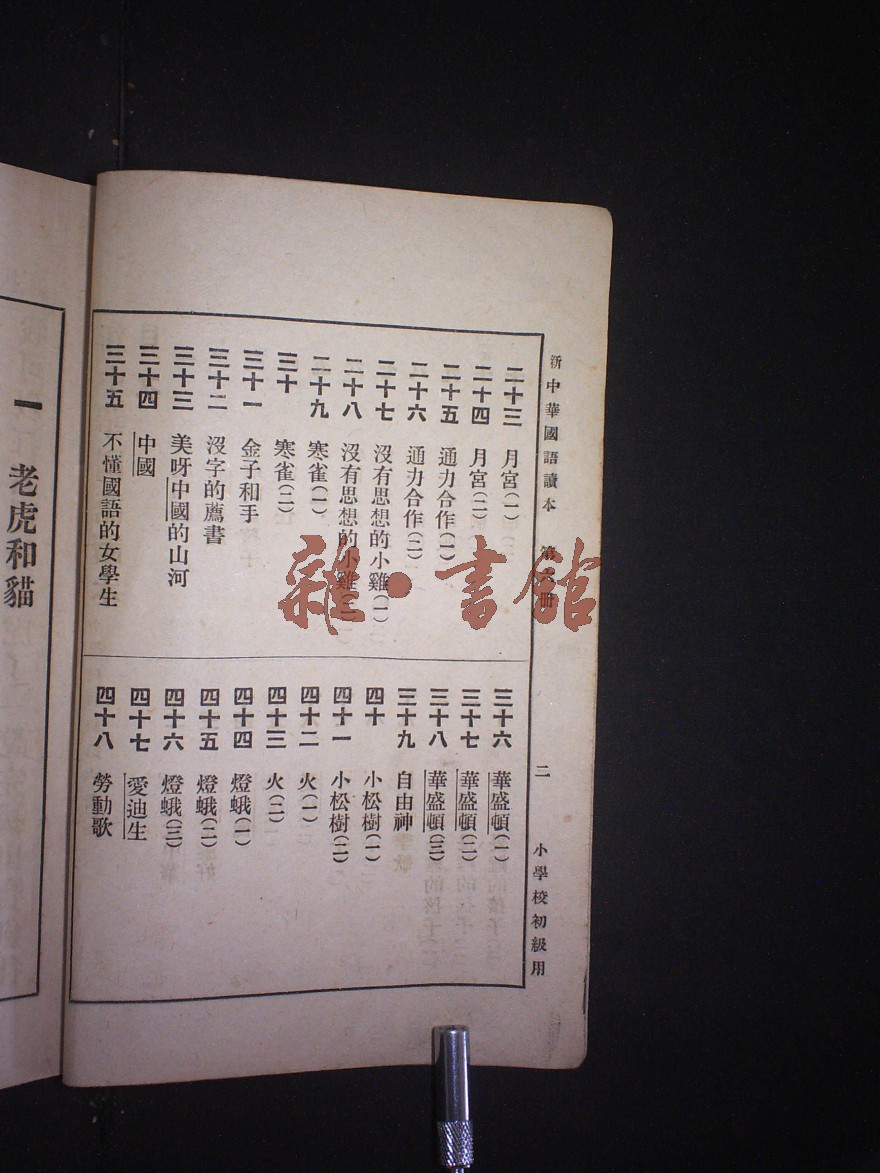 新中華國語讀本 第 冊 二 小學校初級用
二十三 月宮(一)
二十四 月宮(二)
二十五 通力合作(一)
二十六 通力合作(二)
二十七 沒有思想的小雞(一)
二十八 沒有思想的小雞(二)
二十九 寒雀(一)
三十 寒雀(二)
三十一 金子和手
三十二 沒字的薦書
三十三 美呀中國的山河
三十四 中國
三十五 不懂國語的女學生
三十六 華盛頓(一)
三十七 華盛頓(二)
三十八 華盛頓(三)
三十九 自由神
四十 小松樹(一)
四十一 小松樹(二)
四十二 火(一)
四十三 火(二)
四十四 燈蛾(一)
四十五 燈蛾(二)
四十六 燈蛾(三)
四十七 愛迪生
四十八 勞動歌
一 老虎和貓
雜·書館